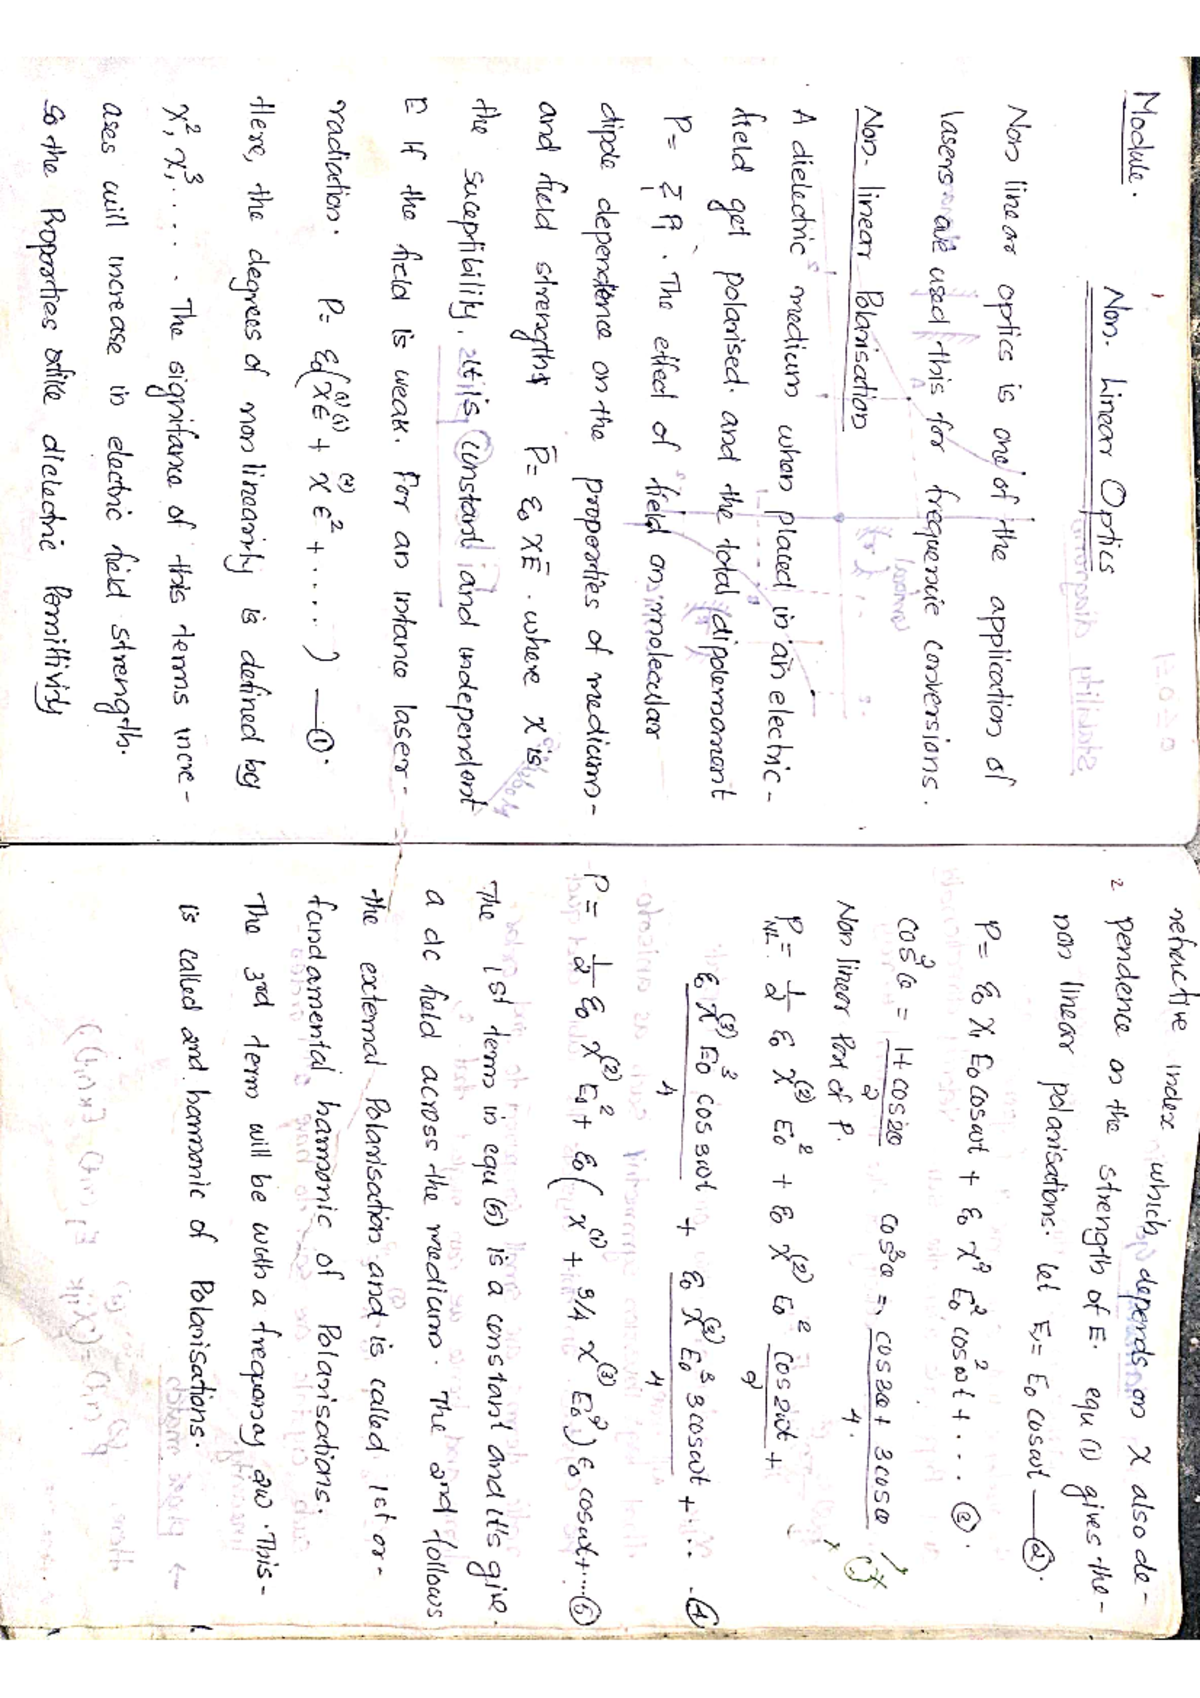 Module.
Non. Linear Optics
Non linear optics is one of the application of
lasers are used this for frequencie conversions.
Non-linear Polarisation
A dielectric medium when placed in an electric-
field get polarised. and the total dipolemoment
P = Σ Pi. The effect of field on molecular
dipole dependence on the properties of medium-
and field strengths P̄ = ε0 χ Ē. where χ is
the suceptibility. It is constant and independent
E If the field is weak. For an intance laser-
radiation. P = ε0(χ^(1)E^(1) + χ^(2)E^2 + ....) —①.
Here, the degrees of non linearity is defined by
χ^2, χ^3, .... The signifance of this terms incre-
ases will increase in electric field strength.
So the Properties like dielectric Permittivity
refructive index which depends on χ also de-
2 pendence on the strength of E. equ (1) gives the-
non linear polarisations. let E = E0 cosωt —②.
P = ε0 χ1 E0 cosωt + ε0 χ^2 E0^2 cos^2ωt + .... ②.
cos^2 θ = 1+cos2θ / 2 cos^3θ = cos3θ + 3cosθ / 4.
Non linear Part of P.
P_NL = 1/2 ε0 χ^(2) E0^2 + ε0 χ^(2) E0^2 cos2ωt / 2 +
ε0 χ^(3) E0^3 cos3ωt / 4 + ε0 χ^(3) E0^3 3cosωt / 4 + ... -④
P = 1/2 ε0 χ^(2) E0^2 + ε0( χ^(1) + 3/4 χ^(3) E0^2) E0 cosωt+....⑤
The 1st term in equ (5) is a constant and it's give.
a dc field across the medium. The 2nd follows
the external Polarisation and is called 1st or-
fundamental harmonic of Polarisations.
The 3rd term will be with a frequency 2ω. This-
is called 2nd harmonic of Polarisations.